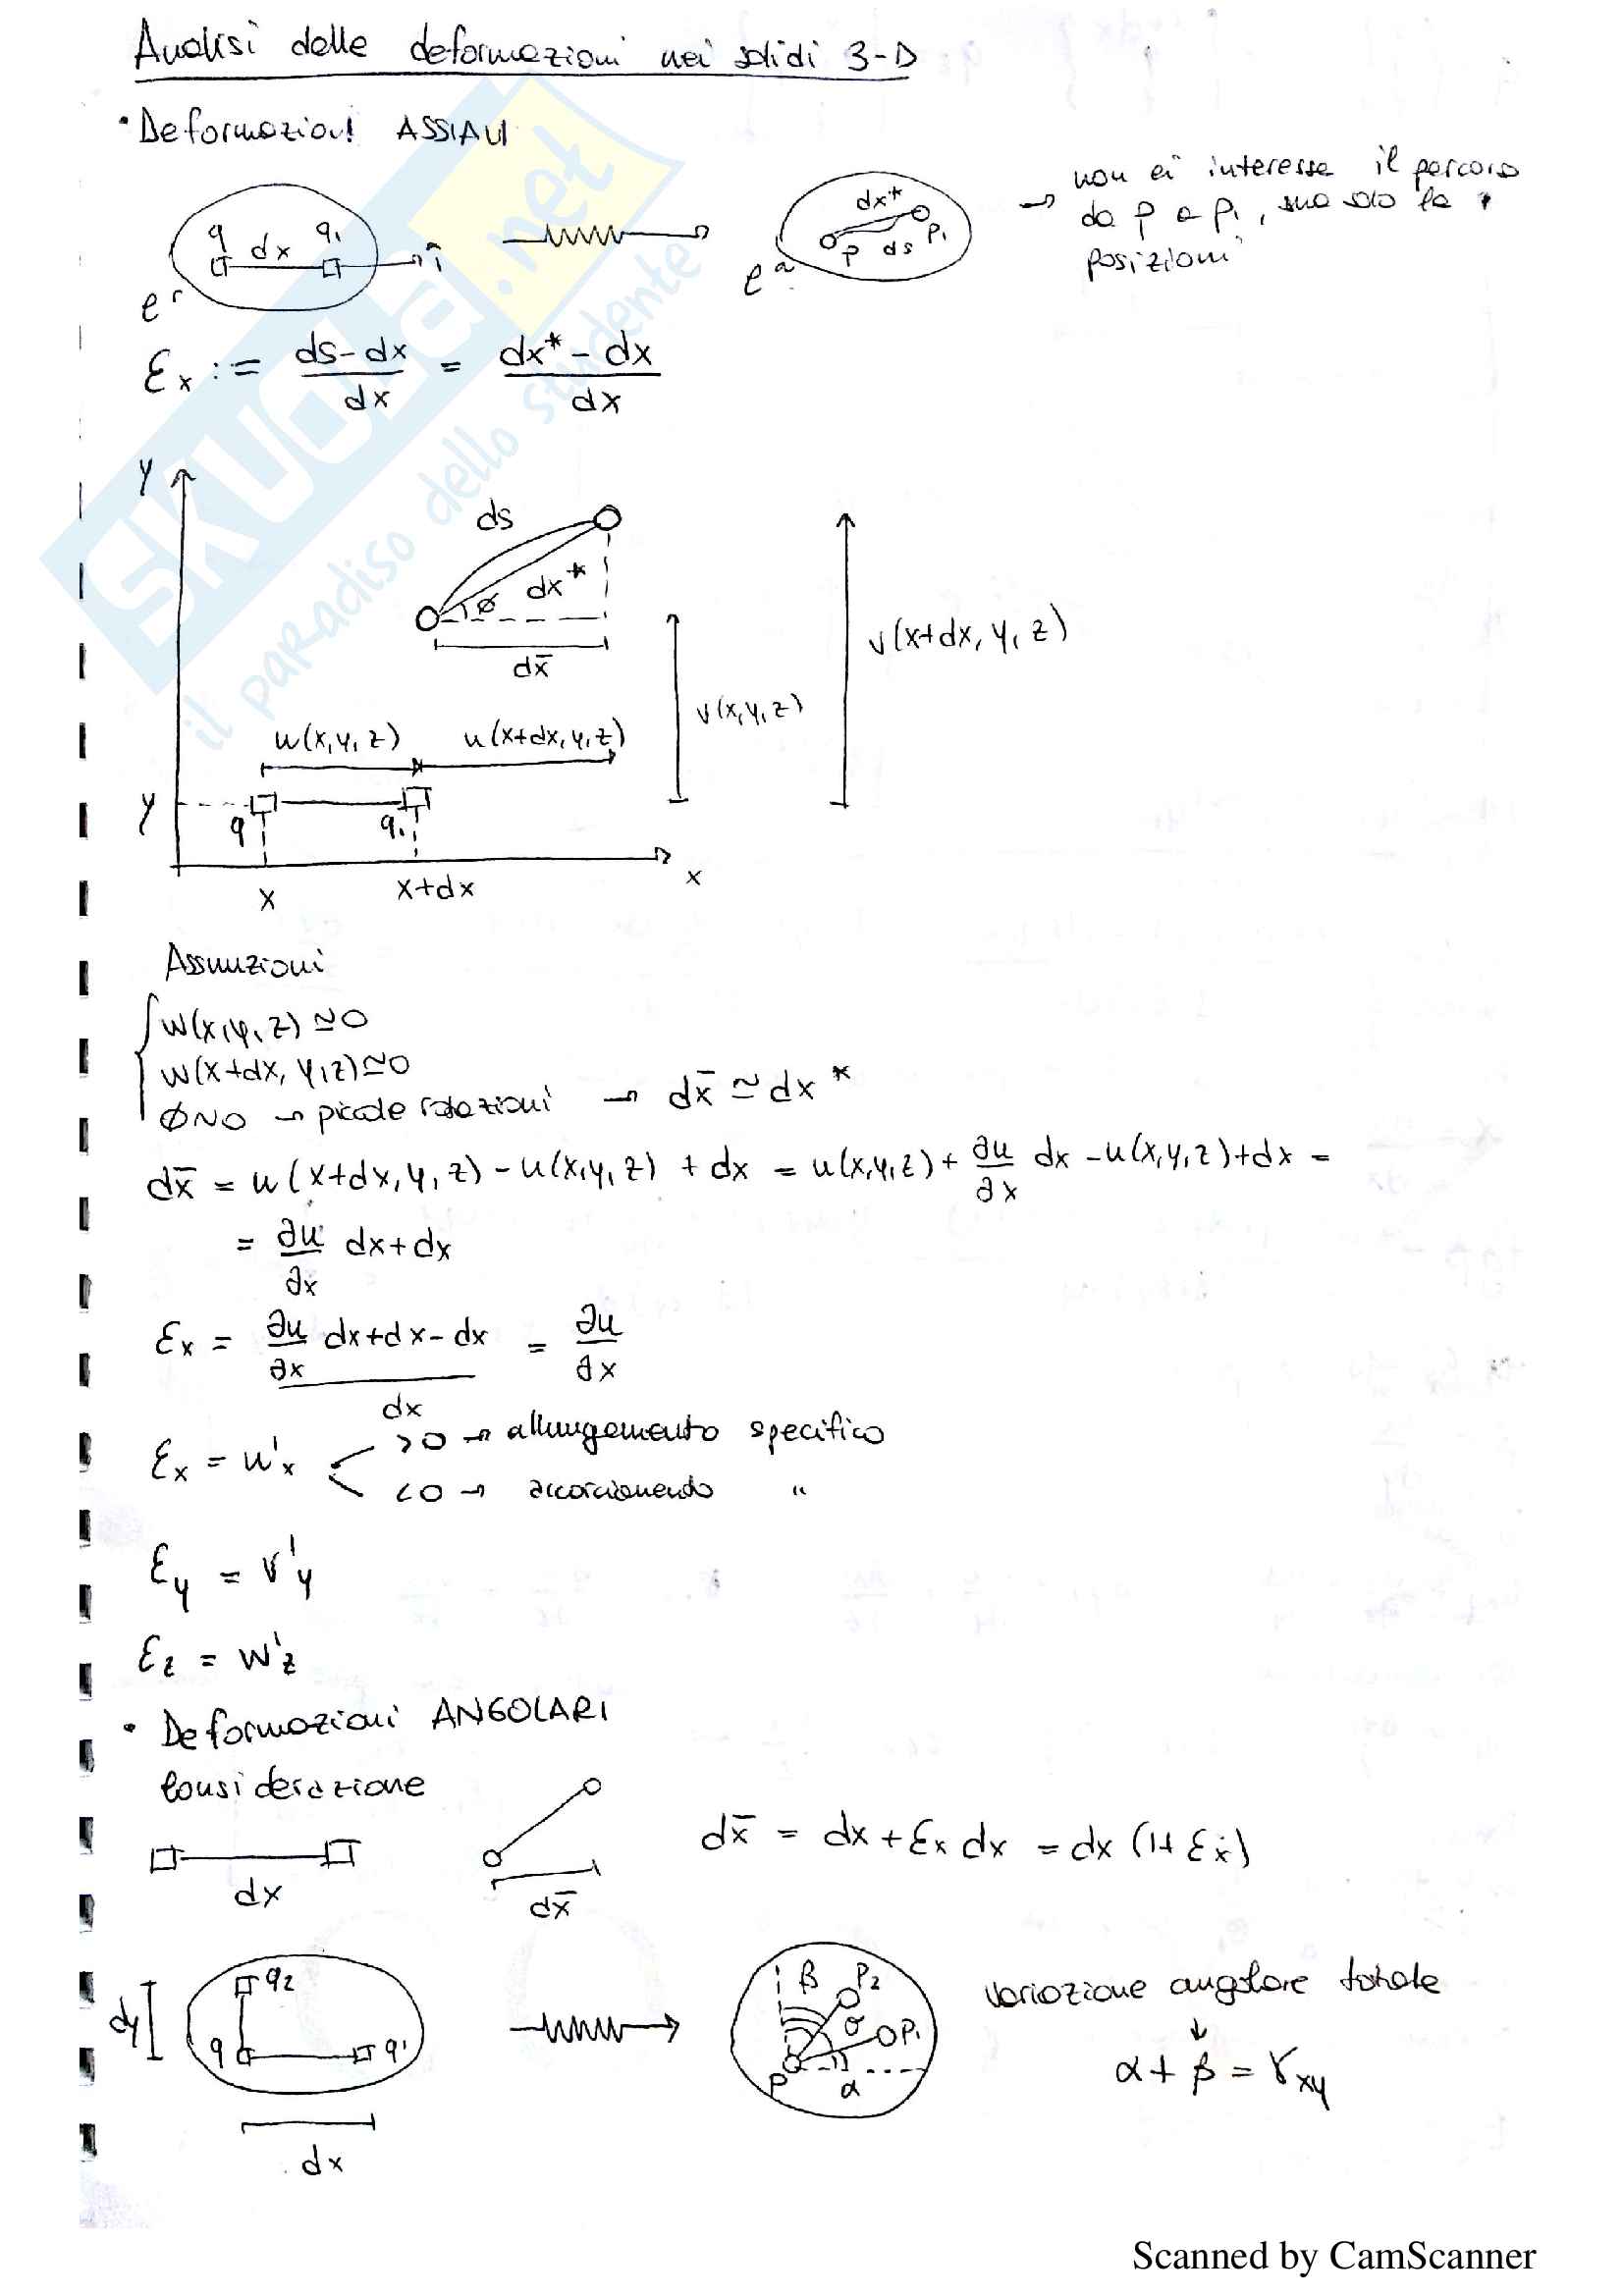 Analisi delle deformazioni nei solidi 3-D
• Deformazioni ASSIALI
q dx q₁ î
eʳ
dx*
p ds p₁
eᵃ
→ non ci interessa il percorso
da p a p₁, ma solo le
posizioni
εx := (ds-dx)/dx = (dx*-dx)/dx
y
ds
dx*
φ
dx̄
v(x+dx, y, z)
v(x,y,z)
u(x,y,z) u(x+dx,y,z)
y
q q₁
x x+dx x
Assunzioni
w(x,y,z) ≃ 0
w(x+dx, y,z) ≃ 0
φ~0 → piccole rotazioni → dx̄ ≃ dx*
dx̄ = u(x+dx,y,z) - u(x,y,z) + dx = u(x,y,z) + ∂u/∂x dx - u(x,y,z)+dx =
= ∂u/∂x dx+dx
εx = (∂u/∂x dx+dx-dx)/dx = ∂u/∂x
εx = u'x >0 → allungamento specifico
<0 → accorciamento "
εy = v'y
εz = w'z
• Deformazioni ANGOLARI
Considerazione
dx̄ = dx + εx dx = dx (1+εx)
dx dx̄
dy q₂ q q₁
dx
β p₂ σ p₁ p α
variazione angolare totale
↓
α + β = γxy
SKUOLA.net
il paradiso dello studente
Scanned by CamScanner